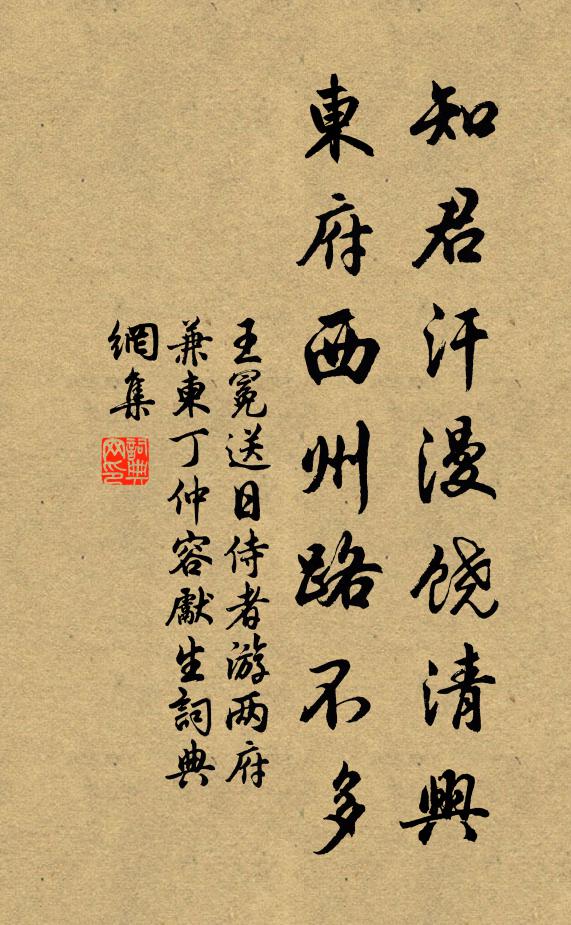 知君汗漫饶清興
東府西州路不多
王冕送日侍者游两府
兼東丁仲容獻生詞典
網集
詞典
网印